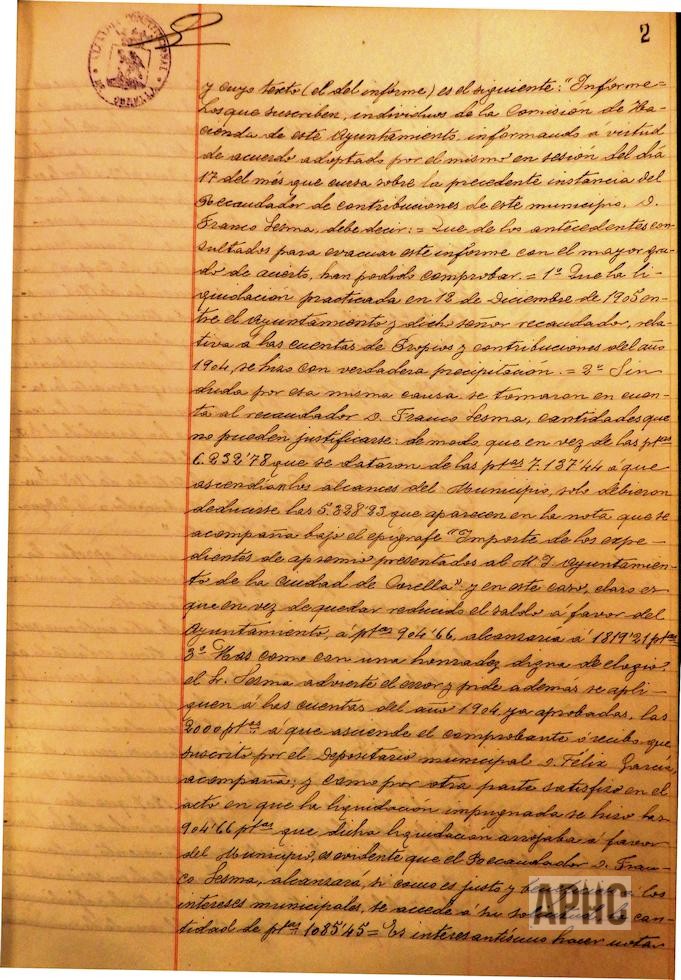 2
y cuyo texto (el del informe) es el siguiente: "Informe=
Los que suscriben, individuos de la Comisión de Ha-
cienda de este Ayuntamiento, informando á virtud
de acuerdo adoptado por el mismo en sesión del día
17 del més que cursa sobre la precedente instancia del
Recaudador de contribuciones de este municipio, D.
Franco Sesma, debe decir: = Que de los antecedentes con-
sultados para evacuar este informe con el mayor gra-
do de acierto, han podido comprobar. = 1º Que la li-
quidacion practicada en 18 de Diciembre de 1905 en-
tre el Ayuntamiento y dicho señor recaudador, rela-
tiva á las cuentas de Propios y contribuciones del año
1904, se hizo con verdadera precipitacion. = 2º Sin
duda por esa misma causa se tomaron en cuen-
ta al recaudador D. Franco Sesma, cantidades que
no pueden justificarse: de modo que en vez de las ptas
6.232'78 que se dataron de las ptas 7.137'44 á que
ascendían los alcances del Municipio, solo debieron
deducirse las 5.328'23 que aparecen en la nota que se
acompaña bajo el epígrafe "Importe de los expe-
dientes de apremio presentados al M. I. Ayuntamien-
to de la ciudad de Corella" y en este caso, claro es
que en vez de quedar reducido el saldo á favor del
Ayuntamiento, á ptas 904'66, alcanzaria á 1819'21 ptas
3º Mas como con una honradez digna de elogio
el Sr. Sesma advierte el error y pide además se apli-
quen á las cuentas del año 1904 ya aprobadas, las
2000 ptas á que asciende el comprobante ó recibo que
suscrito por el Depositario municipal D. Félix García,
acompaña; y como por otra parte satisfizo en el
acto en que la liquidación impugnada se hizo las
904'66 ptas que dicha liquidacion arrojaba á favor
del Municipio, es evidente que el Recaudador D. Fran-
co Sesma, alcanzará, si como es justo y á los
intereses municipales, se accede á su solicitud la can-
tidad de ptas 1085'45 = Es interesantísimo hacer notar
APHC